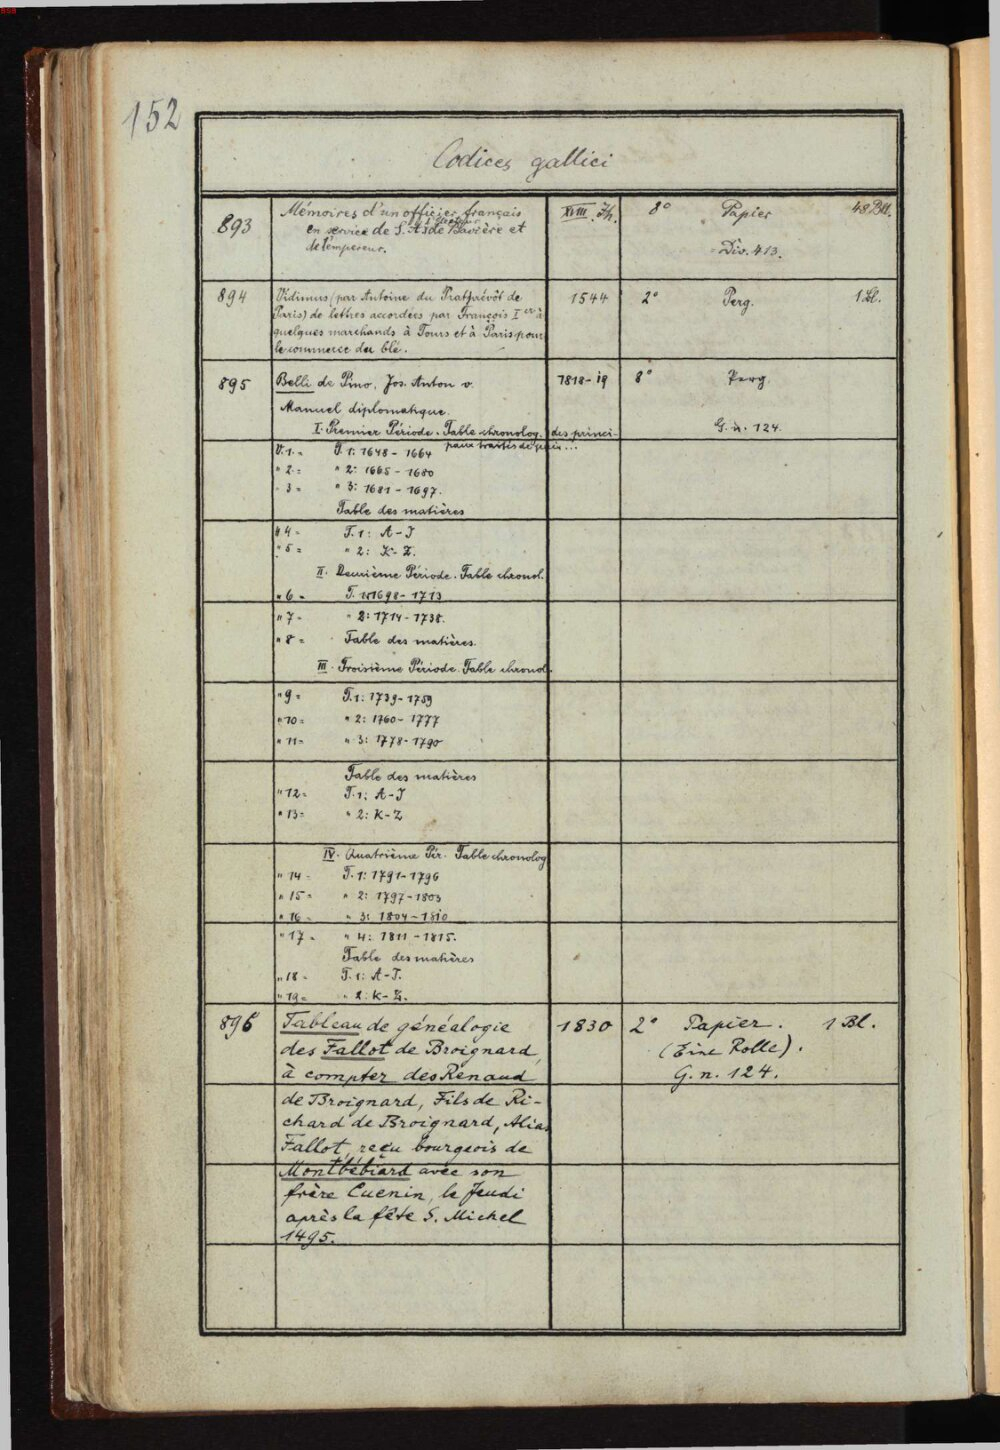 152
Codices gallici
893 Mémoires d'un officier français XVIII. Jh. 8° Papier 48 Bll.
en service de S. A. de Bavière et
de l'empereur. = Div. 413.
894 Vidimus (par Antoine du Prat prévôt de 1544 2° Perg. 1 Bl.
Paris) de lettres accordées par François Ier à
quelques marchands à Tours et à Paris pour
le commerce du blé.
895 Belli de Pino, Jos. Anton v. 1818-19 8° Perg.
Manuel diplomatique.
I. Premier Période. Table chronolog. des princi- G. n. 124.
paux traités de paix...
V. 1. = T. 1: 1648 - 1664
" 2. = " 2: 1665 - 1680
" 3 = " 3: 1681 - 1697.
Table des matières
" 4 = T. 1: A - J
" 5 = " 2: K - Z.
II. Deuxième Période. Table chronol.
" 6 = T. 1: 1698 - 1713
" 7 = " 2: 1714 - 1738.
" 8 = Table des matières.
III. Troisième Période. Table chronol.
" 9 = T. 1: 1739 - 1759
" 10 = " 2: 1760 - 1777
" 11 = " 3: 1778 - 1790
Table des matières
" 12 = T. 1: A - J
" 13 = " 2: K - Z
IV. Quatrième Pér. Table chronolog
" 14 = T. 1: 1791 - 1796
" 15 = " 2: 1797 - 1803
" 16 = " 3: 1804 - 1810
" 17 = " 4: 1811 - 1815.
Table des matières
" 18 = T. 1: A - J.
" 19 = " 2: K - Z.
896 Tableau de généalogie 1830 2° Papier. 1 Bl.
des Fallot de Broignard, (Eine Rolle).
à compter des Renaud G. n. 124.
de Broignard, Fils de Ri-
chard de Broignard, Alias
Fallot, reçu bourgeois de
Montbébiard avec son
frère Cuenin, le Jeudi
après la fête S. Michel
1495.